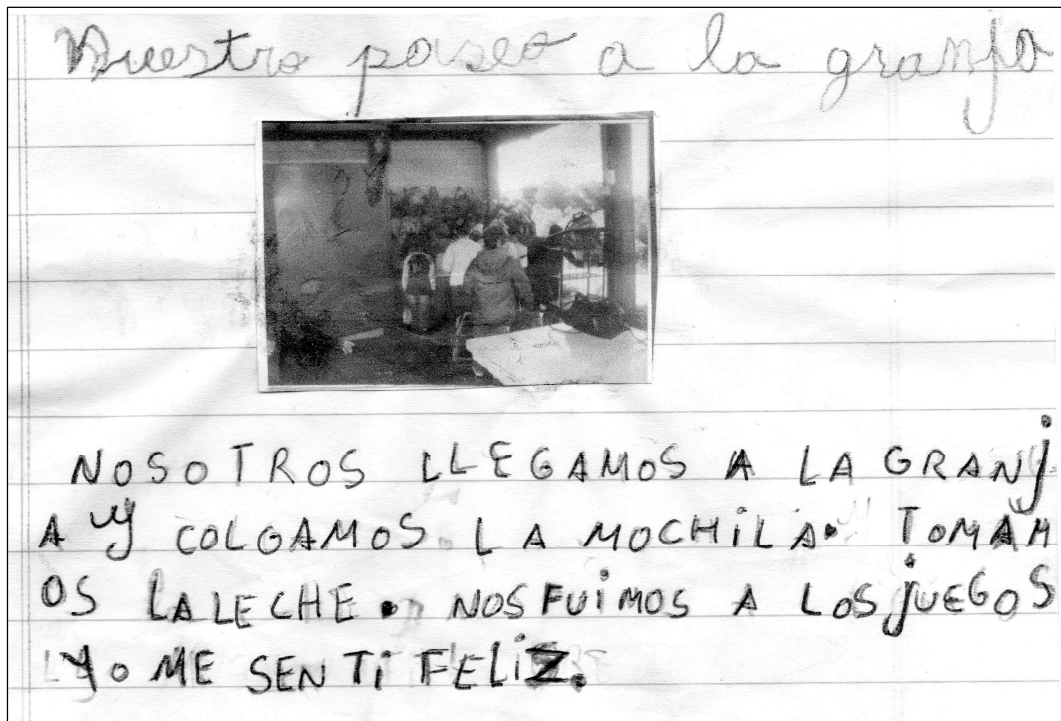 Nuestro paseo a la granja
NOSOTROS LLEGAMOS A LA GRANj
A y COLGAMOS LA MOCHiLA. TOMAM
OS LA LECHE. NOS FUiMOS A LOS jUEGOS
yo ME SENTi FELiZ.